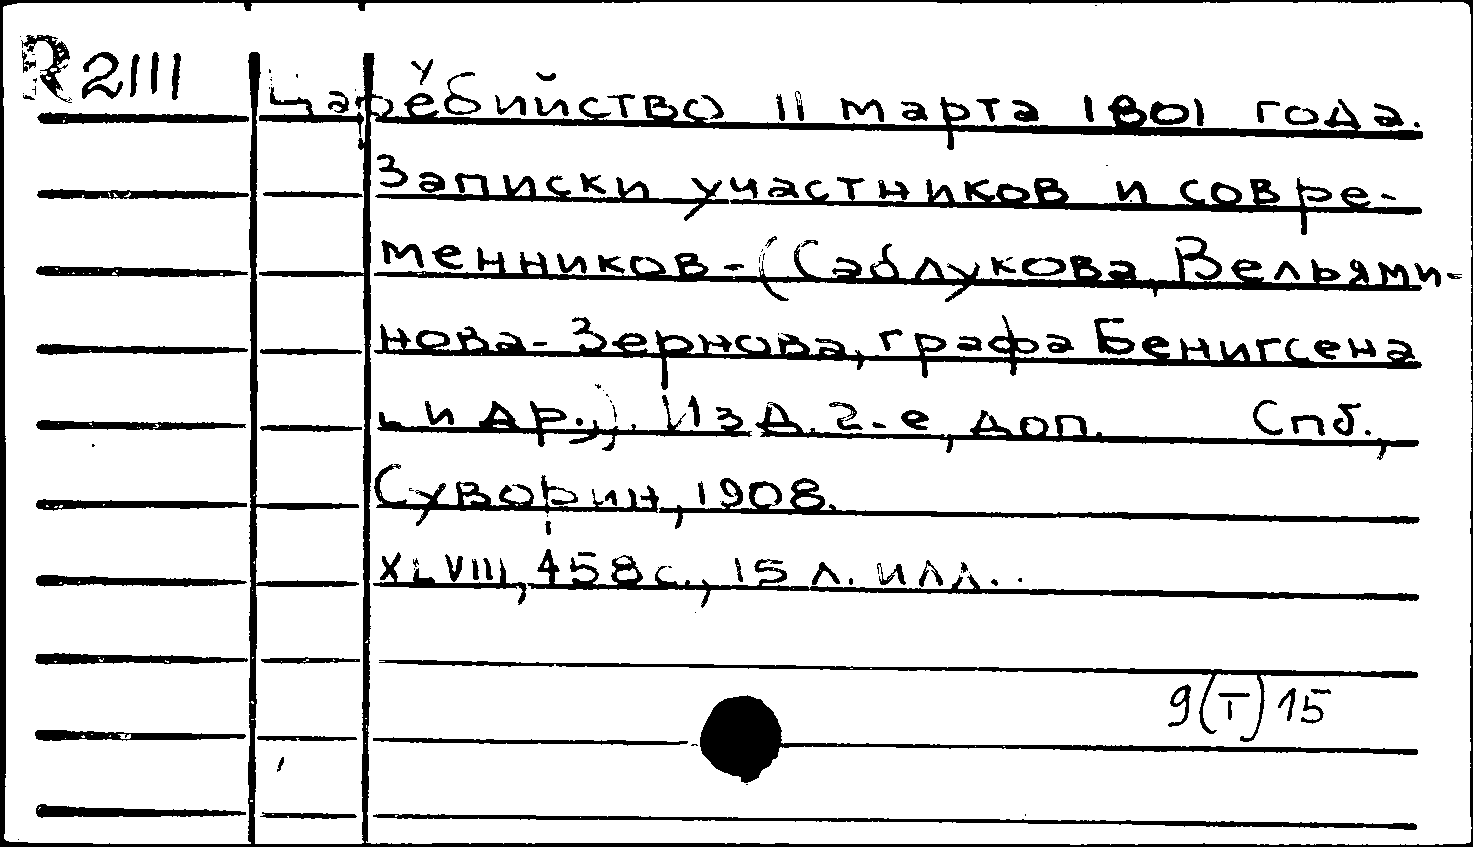 R 2111 Цареубийство 11 марта 1801 года.
Записки участников и совре-
менников-(Саблукова, Вельями-
нова-Зернова, графа Бенигсена
и др.,). Изд. 2-е, доп. Спб.,
Суворин, 1908.
XLVIII, 458 с., 15 л. илл..
9(Т)15